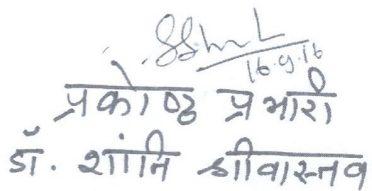 16.9.16
प्रकोष्ठ प्रभारी
डॉ. शांति श्रीवास्तव